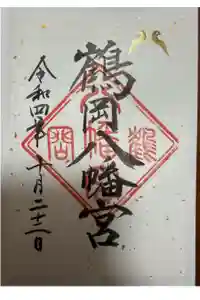 鶴岡八幡宮
令和四年十月二十二日